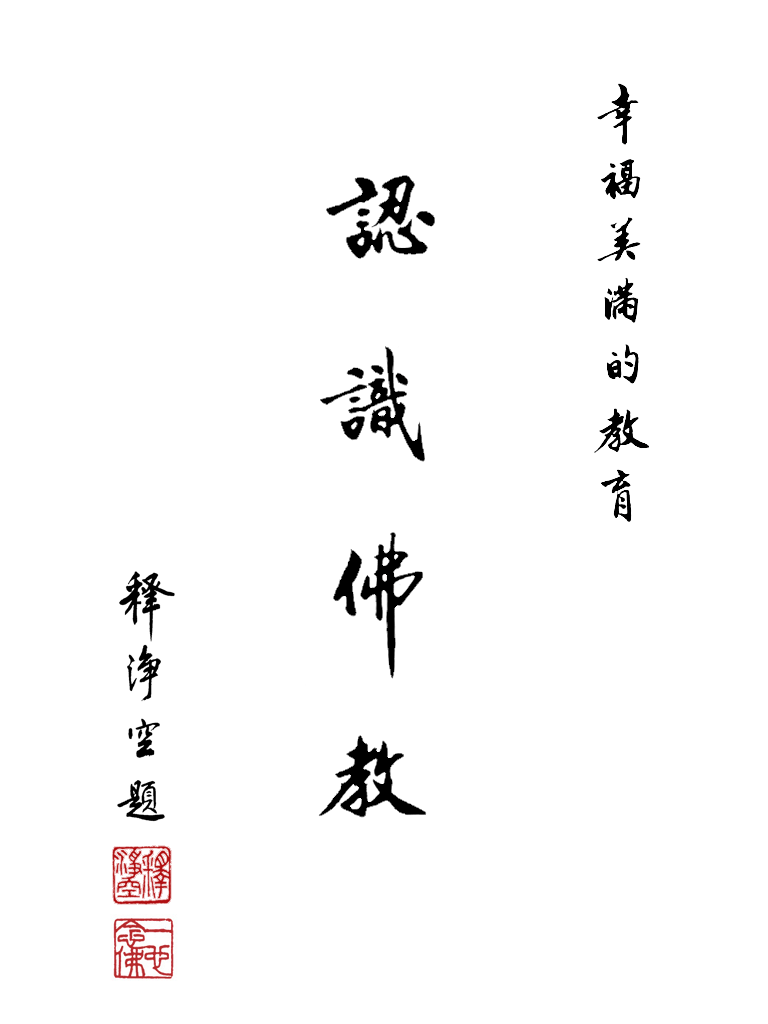 幸福美满的教育
認識佛教
释净空題
釋淨空
一心念佛